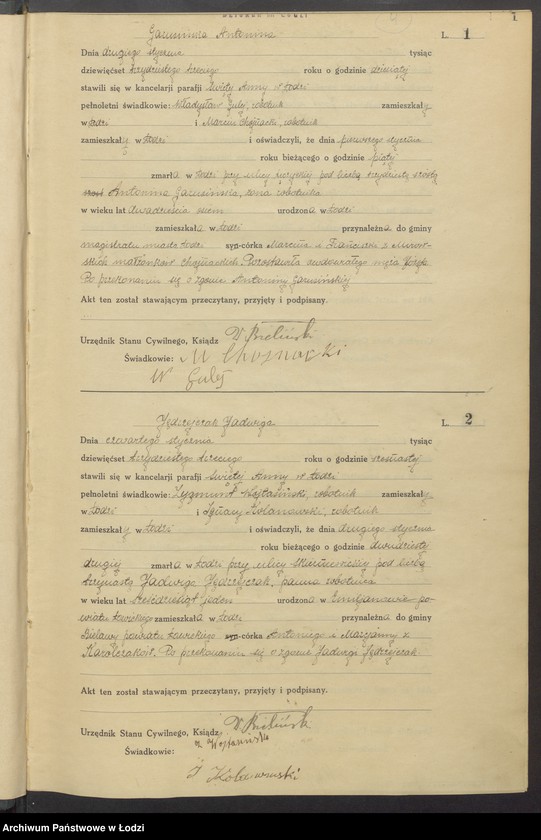 L. 1
Antonina
Dnia drugiego stycznia tysiąc
dziewięćset trzydziestego trzeciego roku o godzinie dziesiątej
stawili się w kancelarji parafji Świętej Anny w Łodzi
pełnoletni świadkowie: Władysław Gulej, robotnik zamieszkały
w Łodzi i Marcin Chojnacki, robotnik
zamieszkały w Łodzi i oświadczyli, że dnia pierwszego stycznia
roku bieżącego o godzinie piątej
zmarła w Łodzi przy ulicy pod liczbą trzydzieści sześć
Antonina żona robotnika
w wieku lat dwadzieścia urodzona w Łodzi
zamieszkała w Łodzi przynależna do gminy
magistratu miasto Łodzi syn-córka Marcina i Franciszki z
małżonków Chojnackich Pozostawiła owdowiałego męża
Po przekonaniu się o zgonie Antoniny
Akt ten został stawającym przeczytany, przyjęty i podpisany.
Urzędnik Stanu Cywilnego, Ksiądz
Świadkowie: M Chojnacki
W Gulej
L. 2
Jędrzejczak Jadwiga
Dnia czwartego stycznia tysiąc
dziewięćset trzydziestego trzeciego roku o godzinie szesnastej
stawili się w kancelarji parafji Świętej Anny w Łodzi
pełnoletni świadkowie: Zygmunt robotnik zamieszkały
w Łodzi i Ignacy robotnik
zamieszkały w Łodzi i oświadczyli, że dnia drugiego stycznia
roku bieżącego o godzinie dwudziestej
drugiej zmarła w Łodzi przy ulicy pod liczbą
trzynastą Jadwiga Jędrzejczak, panna robotnica
w wieku lat jeden urodzona w po-
wiatu zamieszkała w Łodzi przynależna do gminy
Bielawy powiatu syn-córka Antoniego i Marjanny z
Po przekonaniu się o zgonie Jadwigi Jędrzejczak
Akt ten został stawającym przeczytany, przyjęty i podpisany.
Urzędnik Stanu Cywilnego, Ksiądz
Świadkowie:
Archiwum Państwowe w Łodzi